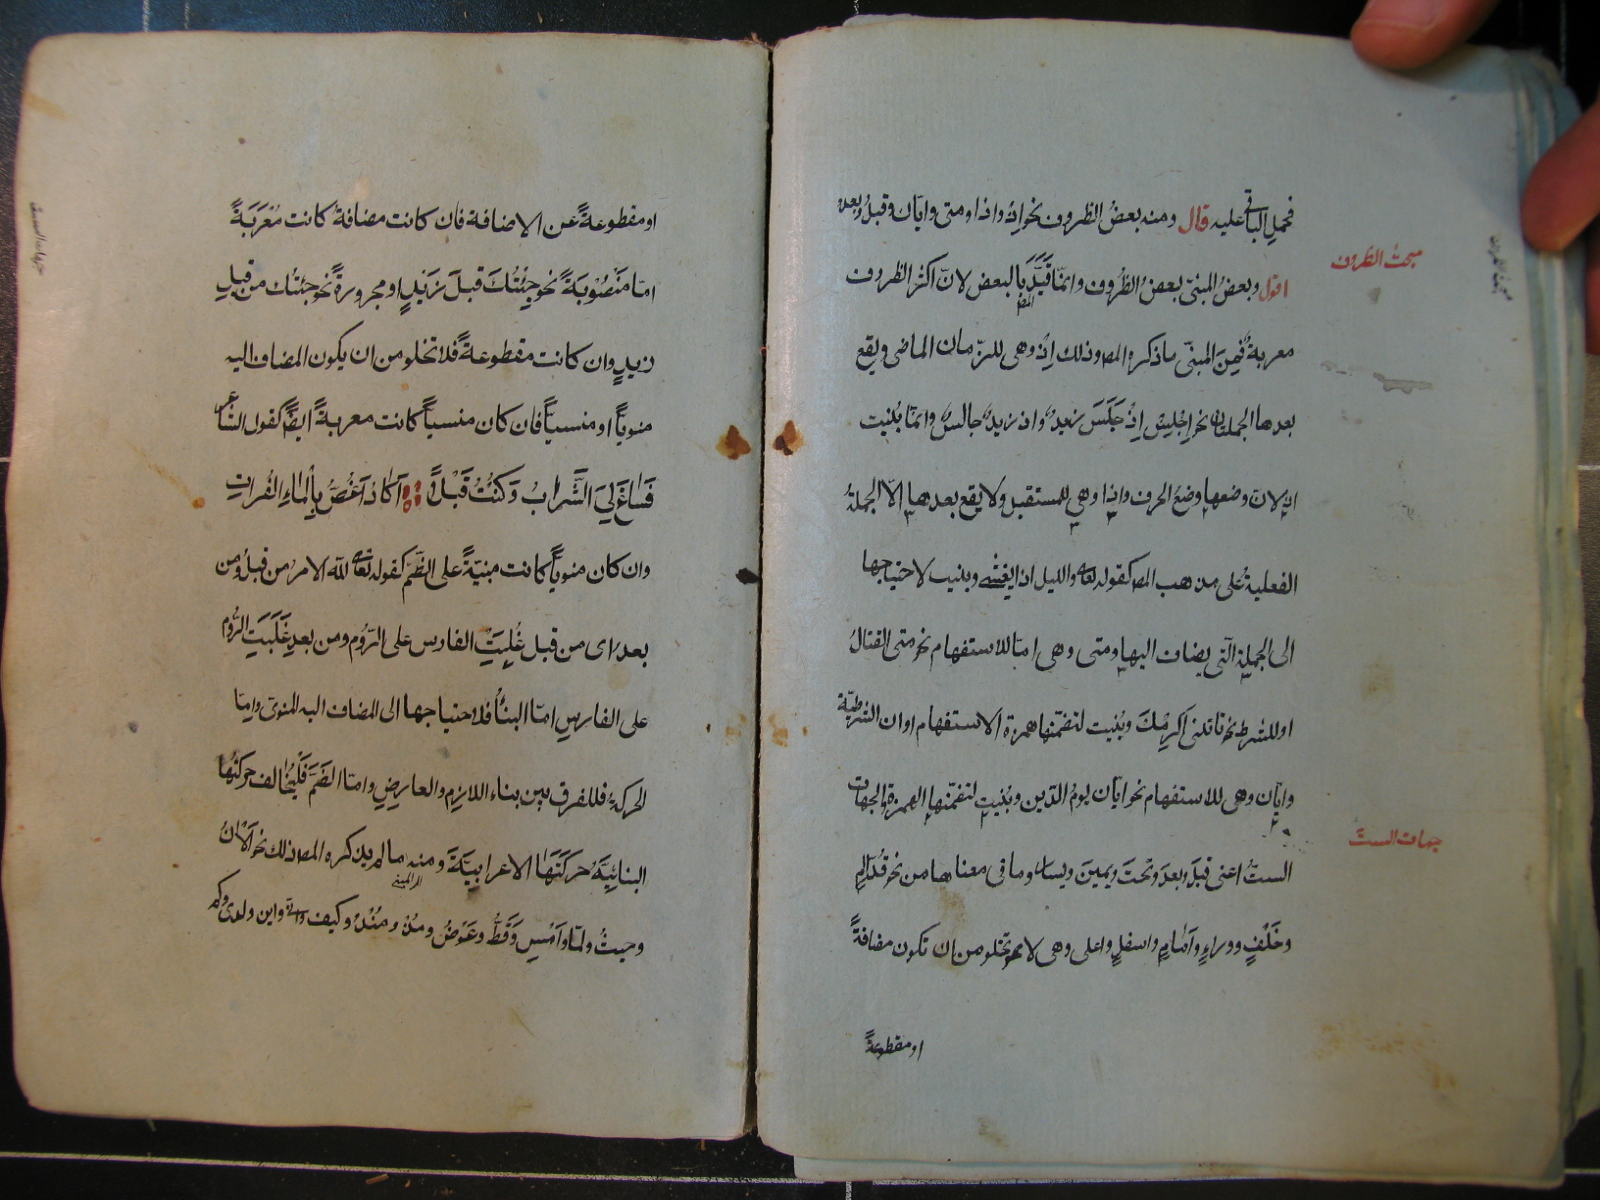 فحمل الباقى عليه قال ومنه بعضُ الظروف نحو اذ واذا ومتى وايّان وقبلُ وبعدُ
مبحث الظروف
اقول وبعضُ المبنىّ بعضُ الظُروف وانّما قَيَّدَ بالبعض لانّ اكثر الظروف
معربةٌ فمِنَ المبنىّ ما ذكره المص وذلك اِذْ وهى للزّمان الماضى ويقع
بعدها الجملتان نحو اِجْلِسْ اِذْ جَلَسَ زيدٌ واذ زيدٌ جالسٌ وانّما بُنيت
اذ لانّ وضعها وضعُ الحرف واذا وهي للمستقبل ولا يقع بعدها الّا الجملةُ
الفعليةُ على مذهب المص كقوله تعالى والليل اذا يغشى وبنيت لاحتياجها
الى الجملة الّتى يضاف اليها ومتى وهى امّا للاستفهام نحو متى القتالُ
او للشرط نحو تاتنى اُكرِمْكَ وبُنيت لتضمّنها همزة الاستفهام او ان الشرطيّة
وايّان وهى للاستفهام نحو ايّان يومُ الدّين وبُنيت لتضمّنها الهمزة والجهات
جهات الستّ
الستُّ اعنى قبلَ وبعدَ وتحتَ ويمينَ ويسار وما فى معناها من نحو قُدّامٍ
وخَلْفٍ ووراءٍ واَمامٍ واسفلٍ واعلى وهى لا تخلو من ان تكون مضافةً
او مقطوعةً
او مقطوعةً عن الاضافة فان كانت مضافةً كانت مُعْرَبَةً
امّا مَنْصُوبَةً نحو جِئْتُكَ قبلَ زَيْدٍ او مجرورةً نحو جئتك من قبلِ
زيدٍ وان كانت مقطوعةً فلا تخلو من ان يكون المضاف اليه
منويّاً او منسيّاً فان كان منسيّاً كانت معربةً ايضً كقول الشّاعر
فَسَاغَ لِيَ الشَّرابُ وَكنتُ قَبْلاً اَكادُ اَغَصُّ بِالْمَاءِ الفُراتِ
وان كان منويّاً كانت مبنيّةً على الضَّمّ كقوله تعالى لله الامر من قبلُ ومن
بعدُ اى من قبل غُلِبَتِ الفارس على الرّوم ومن بعدِ غَلَبَتِ الرُّوم
على الفارسِ امّا البناُ فلاحتياجها الى المضاف اليه المنوىّ وامّا
الحركةُ فللفرق بين بناء اللازم والعارضِ وامّا الضَمّ فليُخالف حركتُها
البنائِيَّةُ حركَتَها الاعرابيّةَ ومنه ما لم يذكره المص وذلك نحو الآنَ
وحيثُ ولمّا واَمْسِ وَقَطُّ وعَوْضُ ومُذْ ومُنْذُ وكيف وانّى واين ولدى وكم